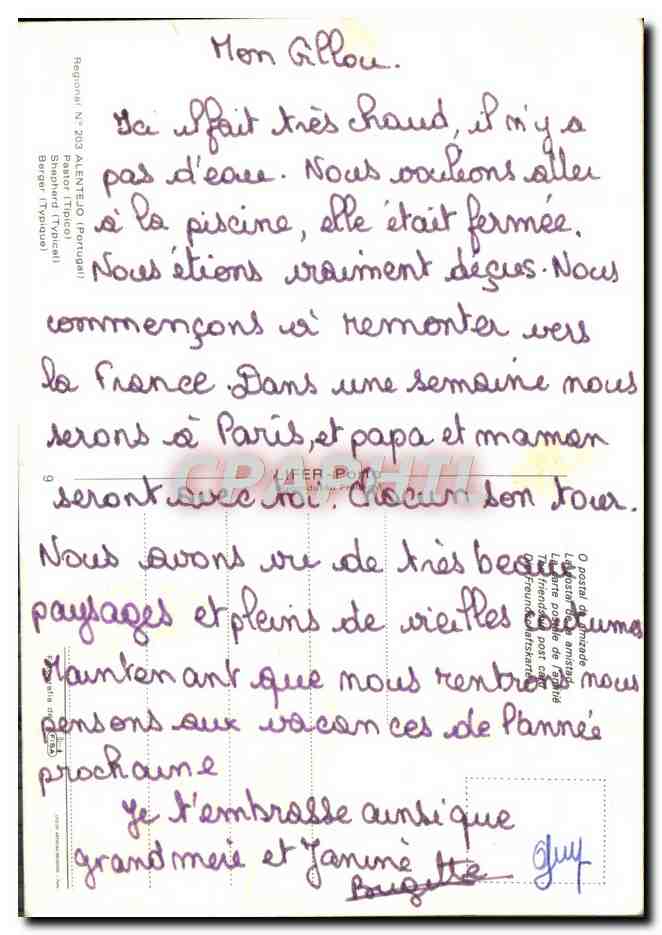 Mon Gillou.
Ici il fait très chaud, il n'y a
pas d'eau. Nous voulions aller
à la piscine, elle était fermée.
Nous étions vraiment déçus. Nous
commençons à remonter vers
la France. Dans une semaine nous
serons à Paris, et papa et maman
seront avec toi. Chacun son tour.
Nous avons vu de très beaux
paysages et pleins de vieilles coutumes
Maintenant que nous rentrons nous
pensons aux vacances de l'année
prochaine
Je t'embrasse ainsi que
grandmère et Janine
Brigitte
Guy
Regional N.º 203 ALENTEJO (Portugal)
Pastor (Típico)
Shepherd (Typical)
Berger (Typique)
CPAPHIL
LIFER - Porto
9
O postal da amizade
La postal de la amistad
La carte postale de l'amitié
The friendship post card
Die Freundschaftskarte